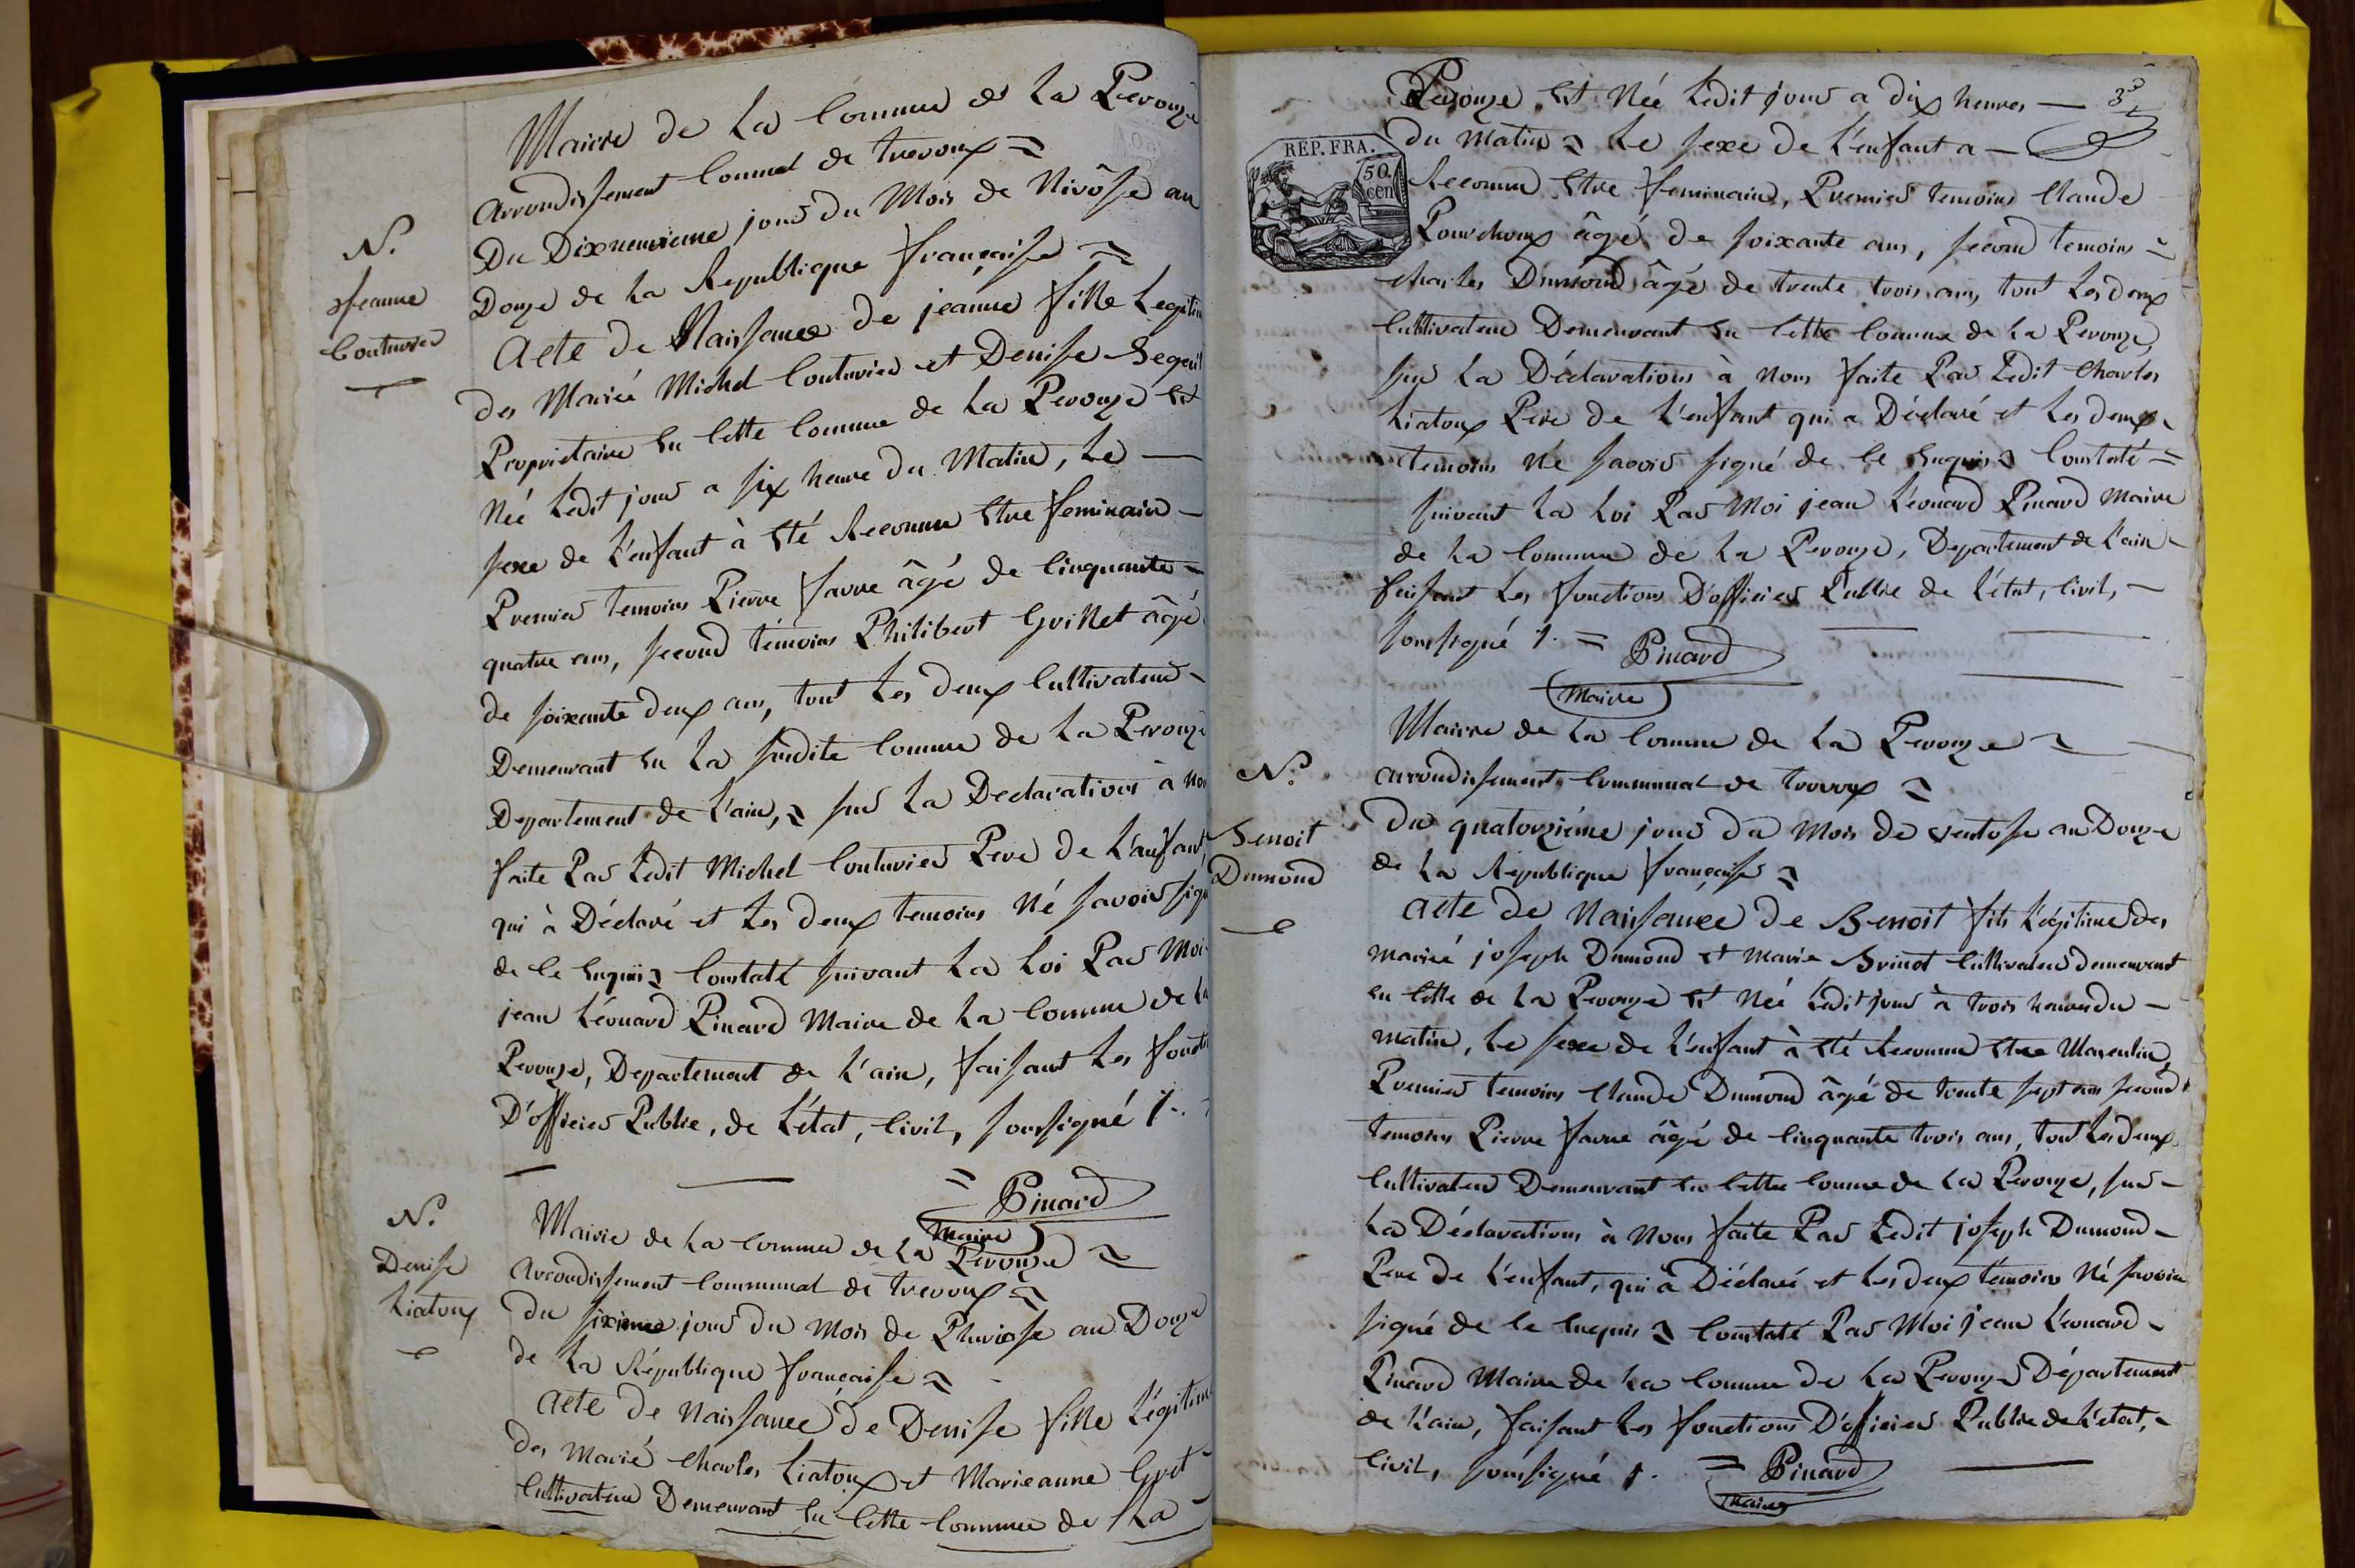 Mairie de La Commune de La Perouze
arrondissement Communal de trevoux =
Du Dixneuvieme jour du Mois de Nivôsse an
Douze de La Republique française =
N.º
Jeanne
Couturier
Acte de Naissance de jeanne fille Legitime
des Marié Michel Couturier et Denise
Propriétaire En Cette Commune de La Perouze Est
Née Ledit jour a six heure du Matin, Le —
sexe de L'enfant à Eté Reconnu Etre feminain —
Premier temoins Pierre favre âgé de Cinquante —
quatre ans, second témoins Philibert Grillet âgé
de soixante deux ans, tout Les deux Cultivateur —
Demeurant En La sudite Commune de La Perouze
Departement de L'ain, = sur La Declaration à nous
faite Par Ledit Michel Couturier Pere de L'anfant
qui à Déclaré et Les deux temoins Né savoir signé
de Ce Enquis = Constaté suivant La Loi Par Moi
jean Léonard Pinard Maire de La Commune de La
Perouze, Departement de L'ain, faisant Les fonctions
D'officier Public, de L'état, Civil, soussigné /.
= Pinard
Maire
N.º
Denise
Liatoux
Mairie de La Commune de La Perouze =
Arrondissement Communal de trevoux =
du sixime jour du Mois de Pluviosse an Douze
de La République française =
Acte de Naissance de Denise fille Légitime
des Marié Charles Liatoux et Marieanne
Cultivateur Demeurant En Cette Commune de La
3
Perouze Est Née Ledit jour a dix heures —
du Matin = Le sexe de L'enfant a —
REP. FRA.
50. cen
Reconnu Etre feminain, Premier temoins Claude
Pourchoux âgé de soixante ans, second temoins =
Charles Dumond âgé de trente trois ans, tout Les deux
Cultivateur Demeurant En Cette Commune de La Perouze,
sur La Déclarations à Nous faite Par Ledit Charles
Liatoux Pere de L'enfant qui a Déclaré et Les deux
temoins Né savoir signé de Ce Enquis = Constaté =
suivant La Loi Par Moi jean Léonard Pinard Maire
de La Commune de La Perouze, Departement de L'ain —
faisant Les fonctions D'officier Public de L'état, Civil, —
soussigné /. = Pinard
Maire
Mairie de La Commune de La Perouze =
arrondissement Communal de trevoux =
N.º
Benoit
Dumond
Du quatorzième jour du Mois de ventosse an Douze
de La République française =
Acte de Naissance de Benoit fils Légitime des
marié joseph Dumond et Marie Brinot Cultivateur demeurant
en Cette de La Perouze Est Née Ledit jour à trois heures du —
matin, Le sexe de L'enfant à Eté Reconnu Etre Masculin,
Premier temoins Claude Dumond âgé de trente sept ans second
temoins Pierre favre âgé de Cinquante trois ans, tout Les deux
Cultivateur Demeurant En Cette Commune de La Pérouze, sur —
La Déclarations à Nous faite Par Ledit joseph Dumond —
Pere de L'enfant, qui à Déclaré et Les deux témoins Né savoir
signé de Ce Enquis = Constaté Par Moi jean Léonard —
Pinard Maire de La Commune de La Perouze Département
de L'ain, faisant Les fonctions D'officier Public de L'état, —
Civil, soussigné /. = Pinard
Maire